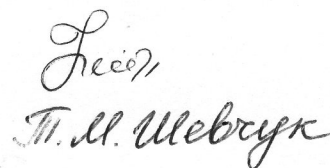 Т.М. Шевчук